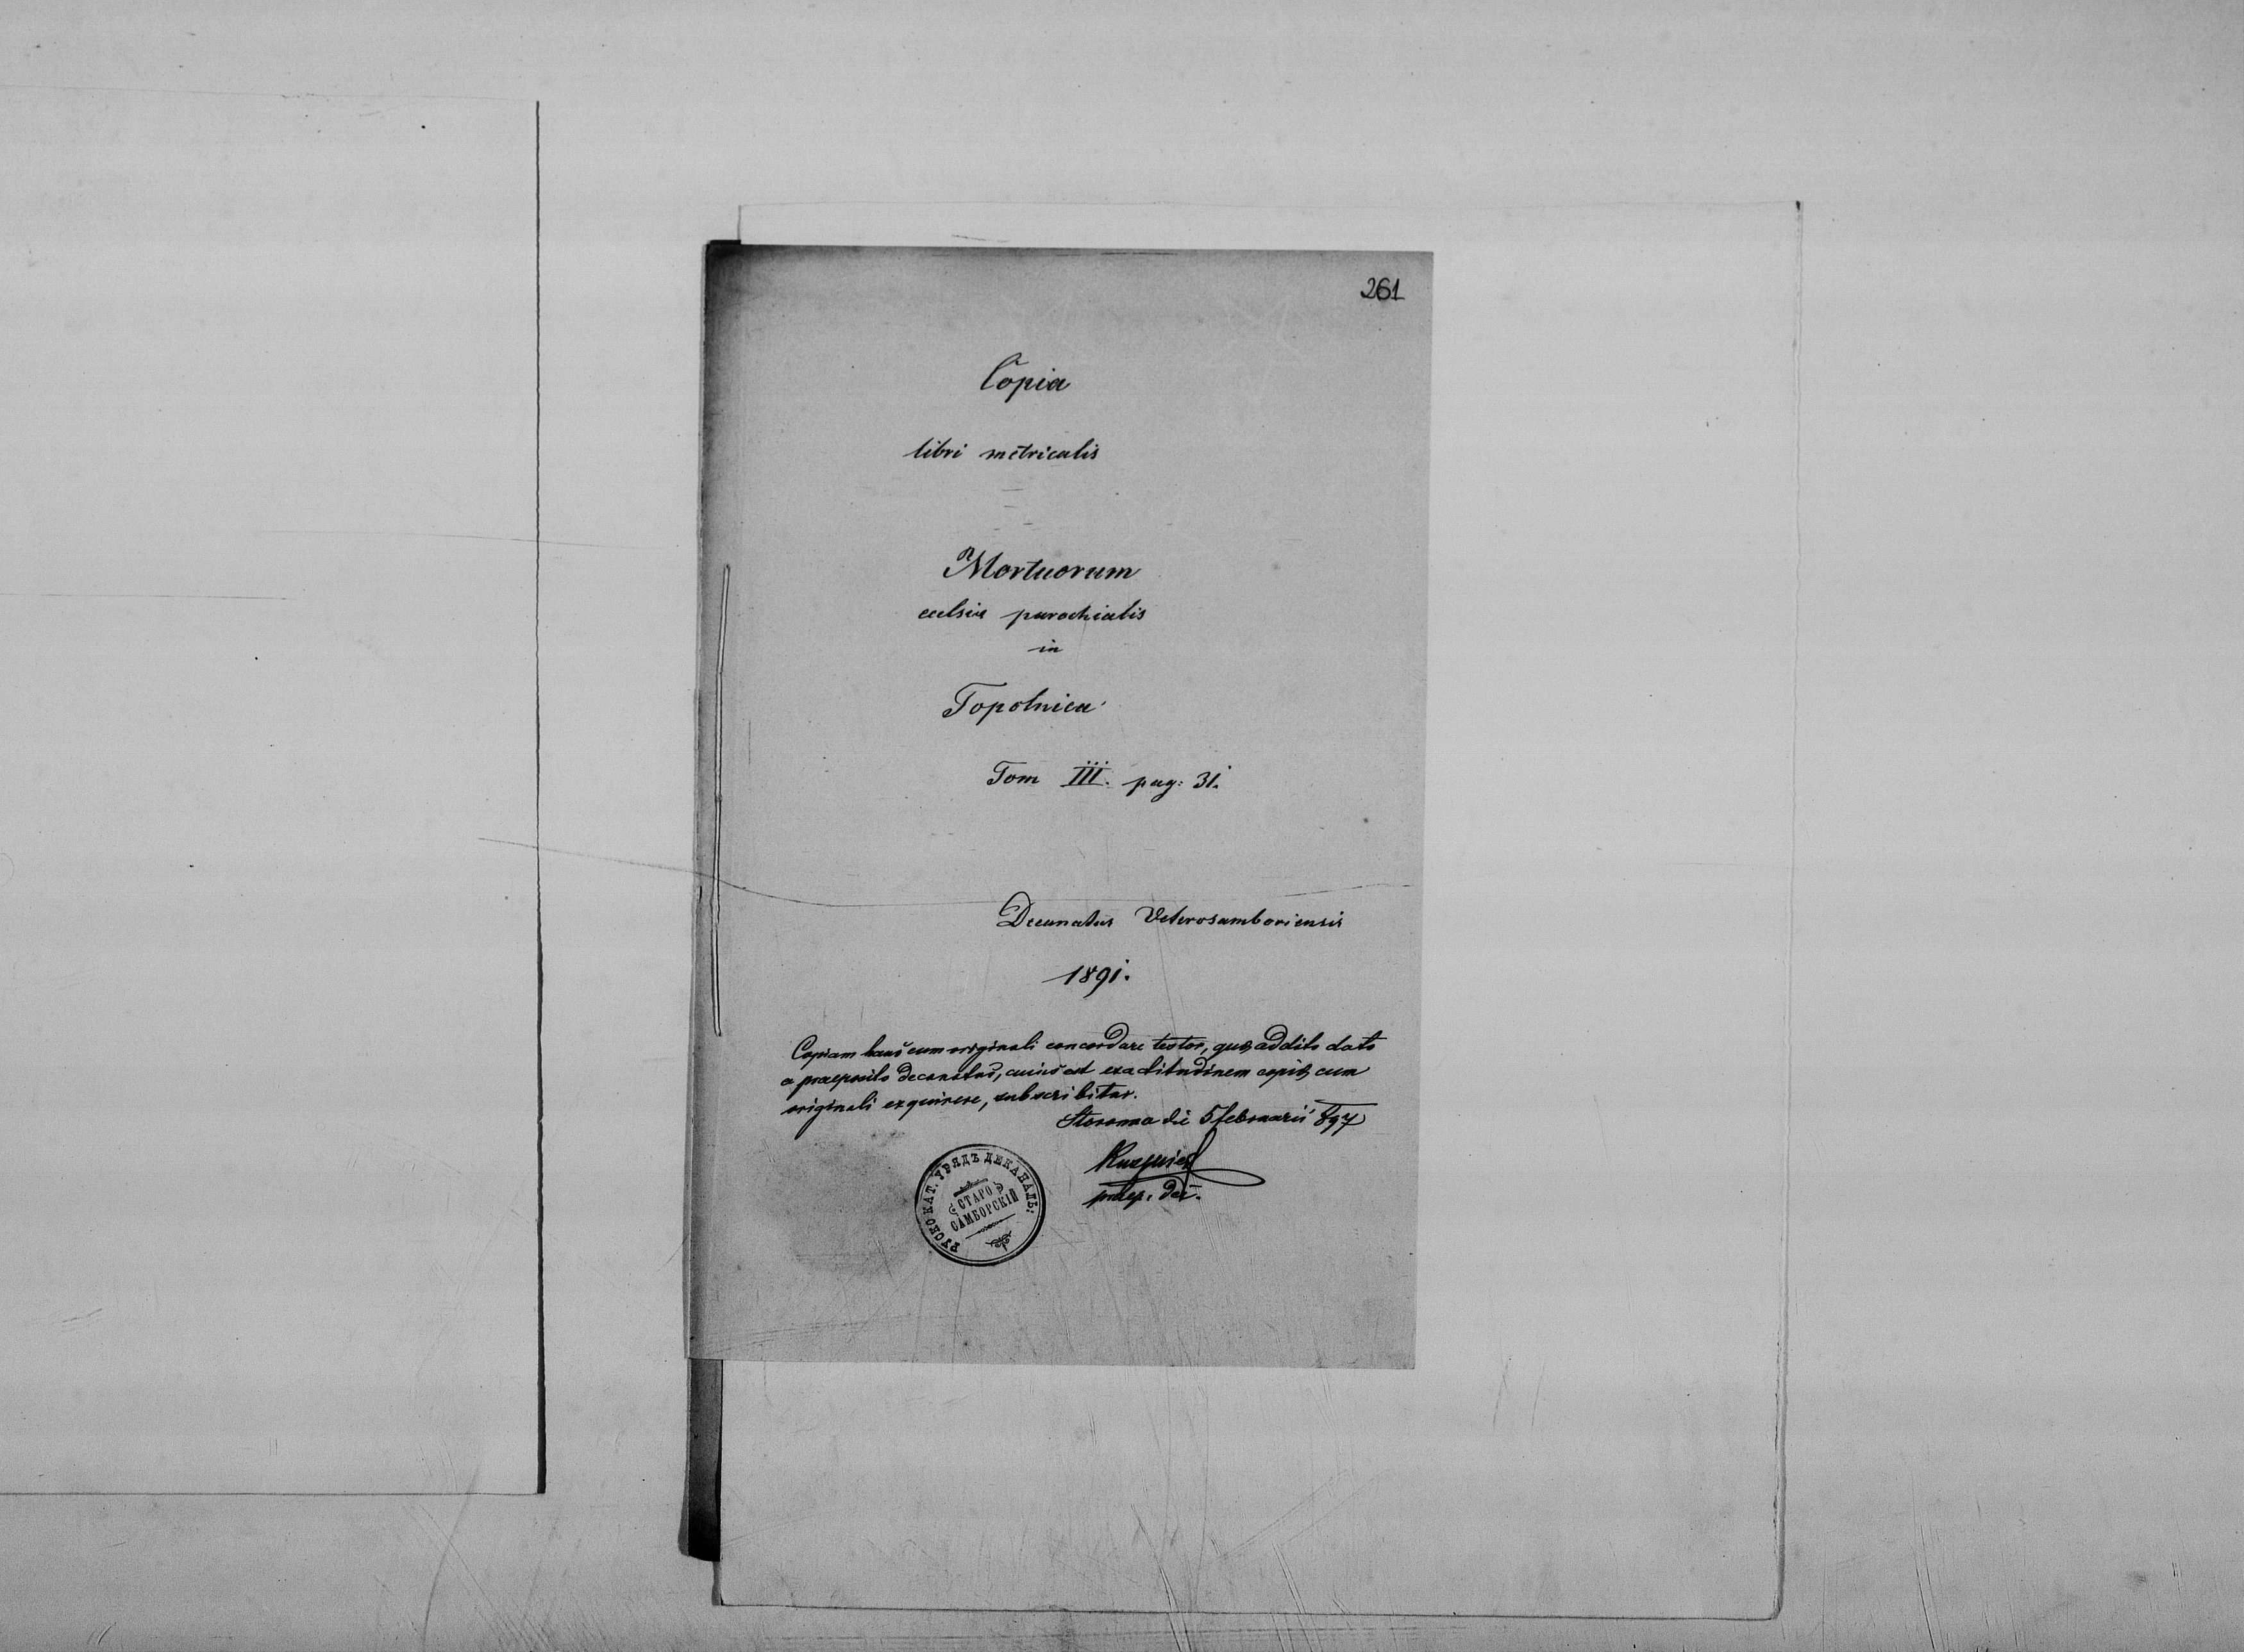 261
Copia
libri metricalis
Mortuorum
ecclsiæ parochialis
in
Topolnica
Tom III. pag: 31.
Decanatus Veterosamboriensis
1891.
Copiam hanc cum originali concordare testor, quo addito dato
a praeposito decanatus, cuius est exactitudinem copiæ cum
originali exquirere, subscribitur.
die 5 februarii 897
praep. dec.
РУСКО КАТ. УРЯДЪ ДЕКАНАЛЬ:
СТАРО
САМБОРСКІЙ